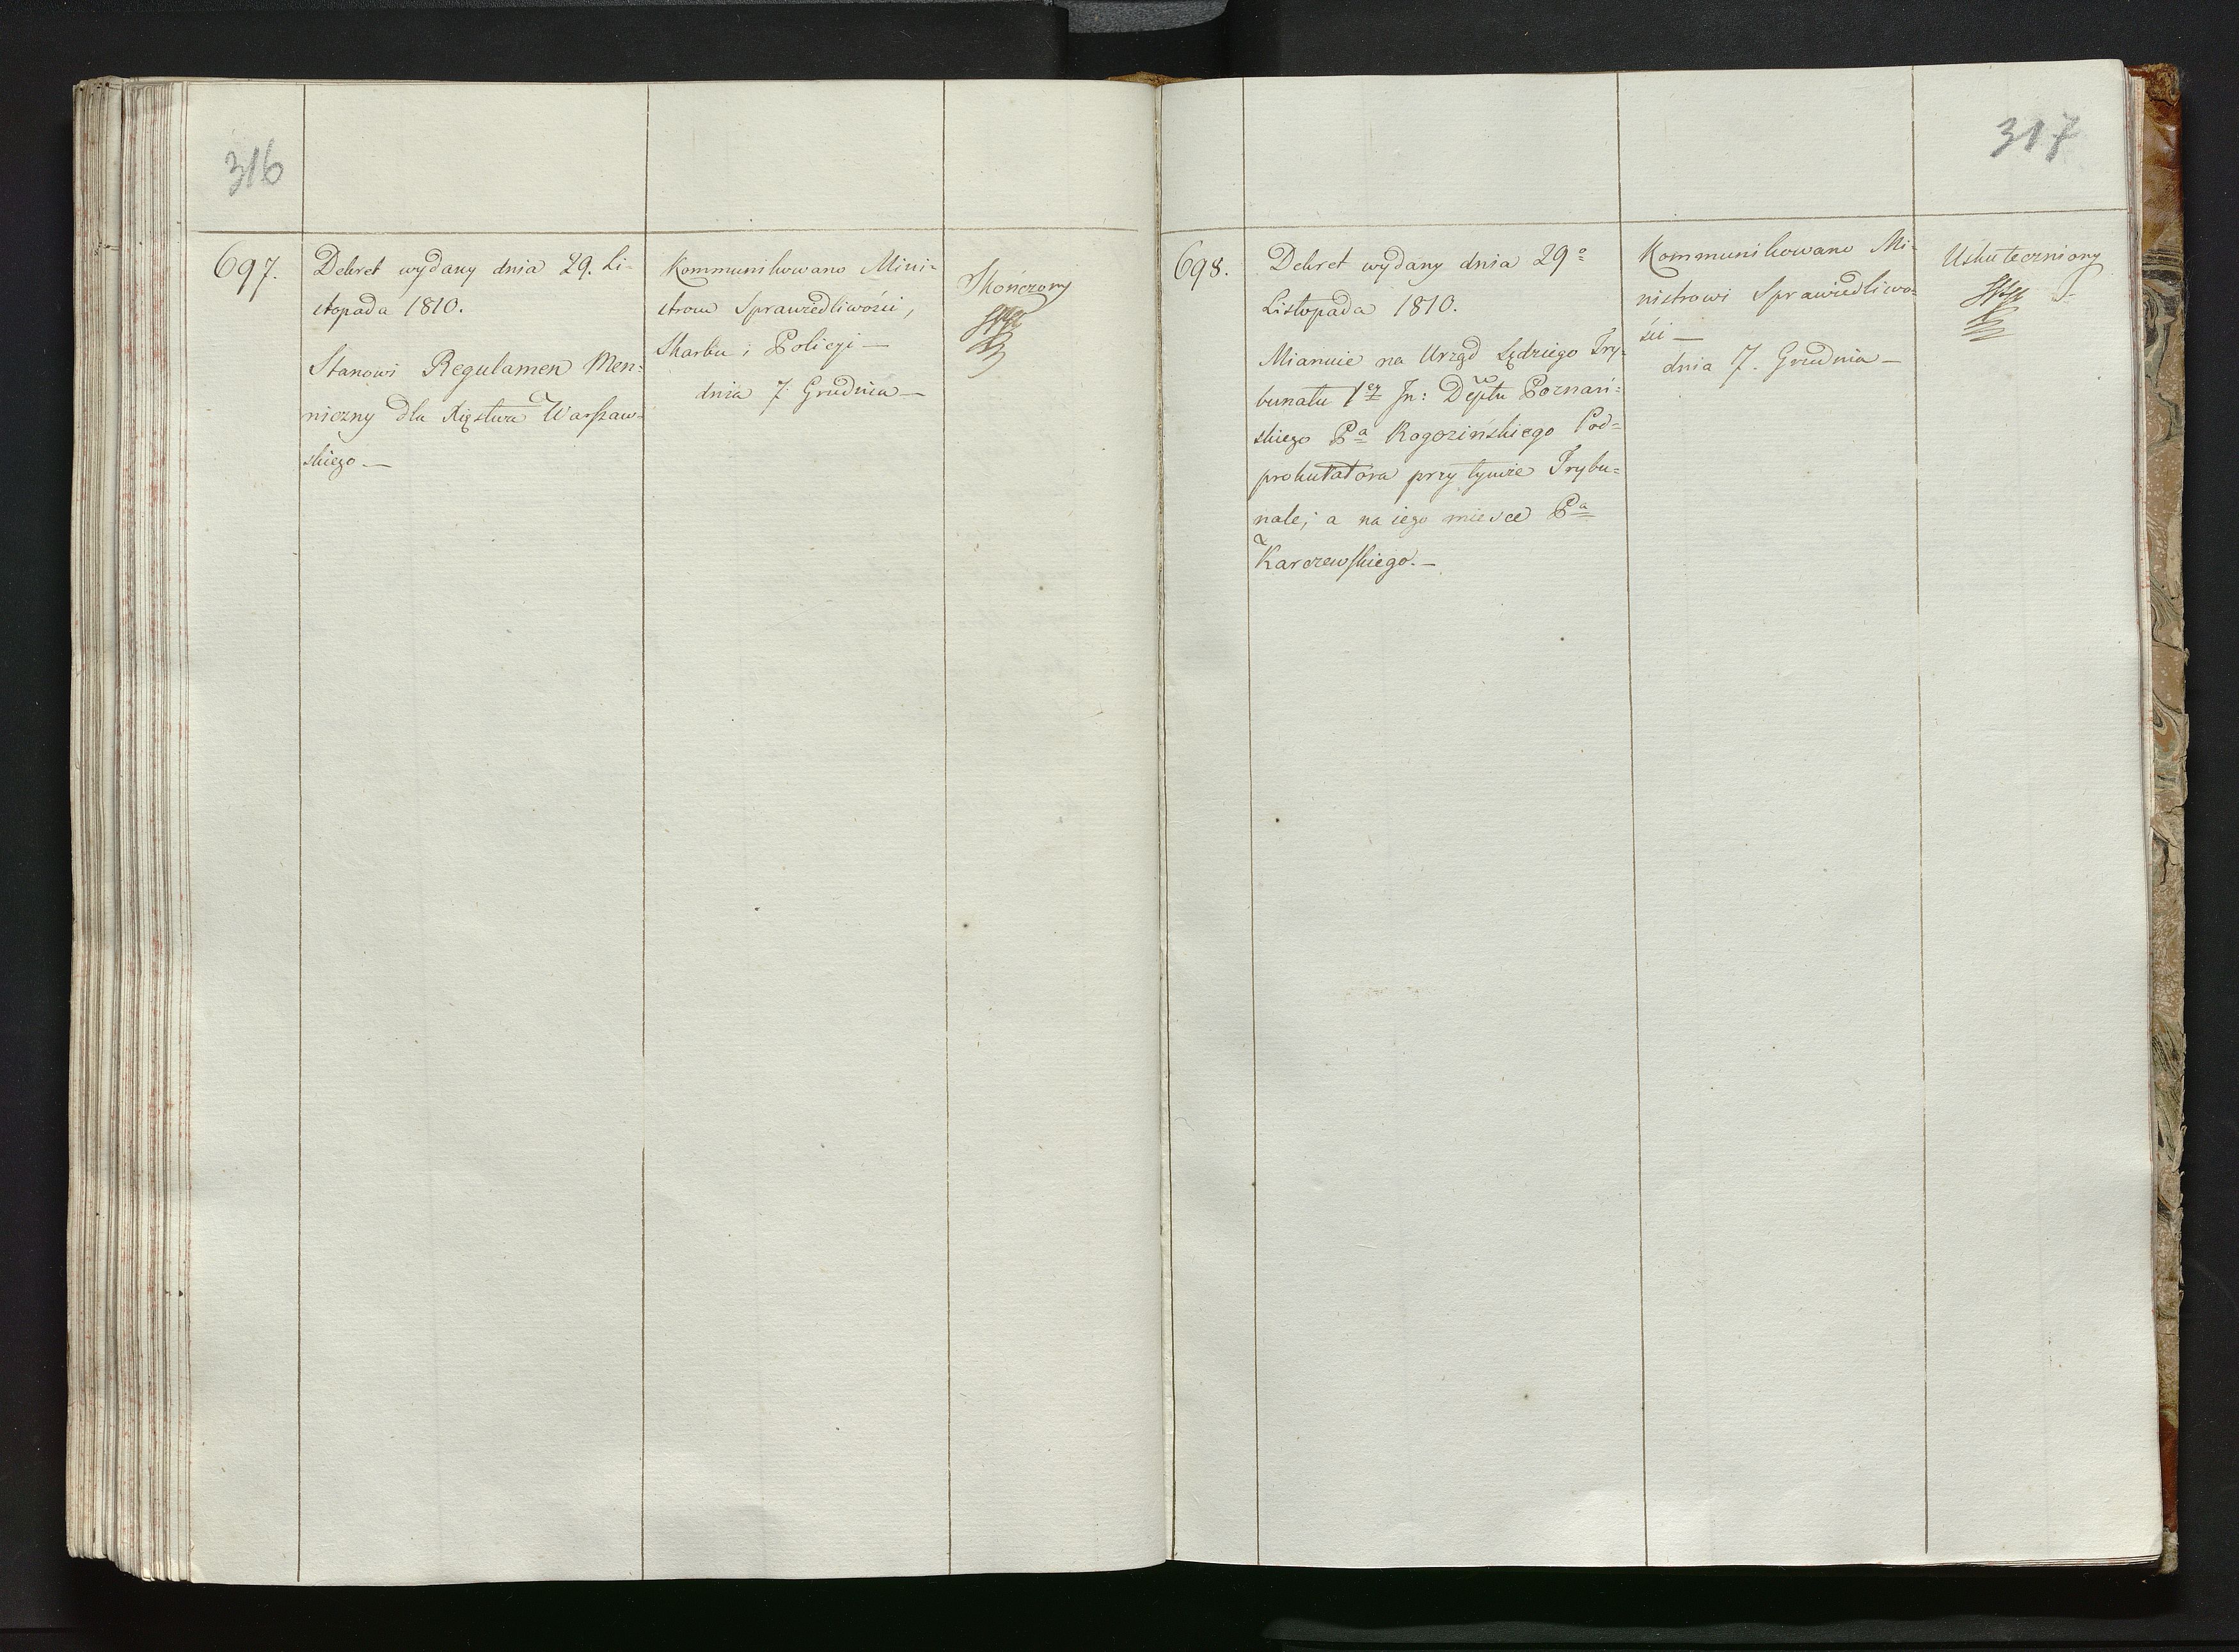 316
697.
Dekret wydany dnia 29. Li-
stopada 1810.
Stanowi Regulamen Men-
niczny dla Xięstwa Warszaw-
skiego —
Kommunikowano Mini-
strom Sprawiedliwości,
Skarbu i Policyi —
dnia 7. Grudnia —
Skończony
317
698.
Dekret wydany dnia 29º
Listopada 1810.
Mianuie na Urząd Sędziego Try-
bunału 1ey In: Deptu Poznań-
skiego Pa Rogozińskiego Pod-
prokuratora przy tymże Trybu-
nale; a na iego miesce Pa
Karczewskiego. —
Kommunikowano Mi-
nistrowi Sprawiedliwo-
ści —
dnia 7. Grudnia —
Uskuteczniony